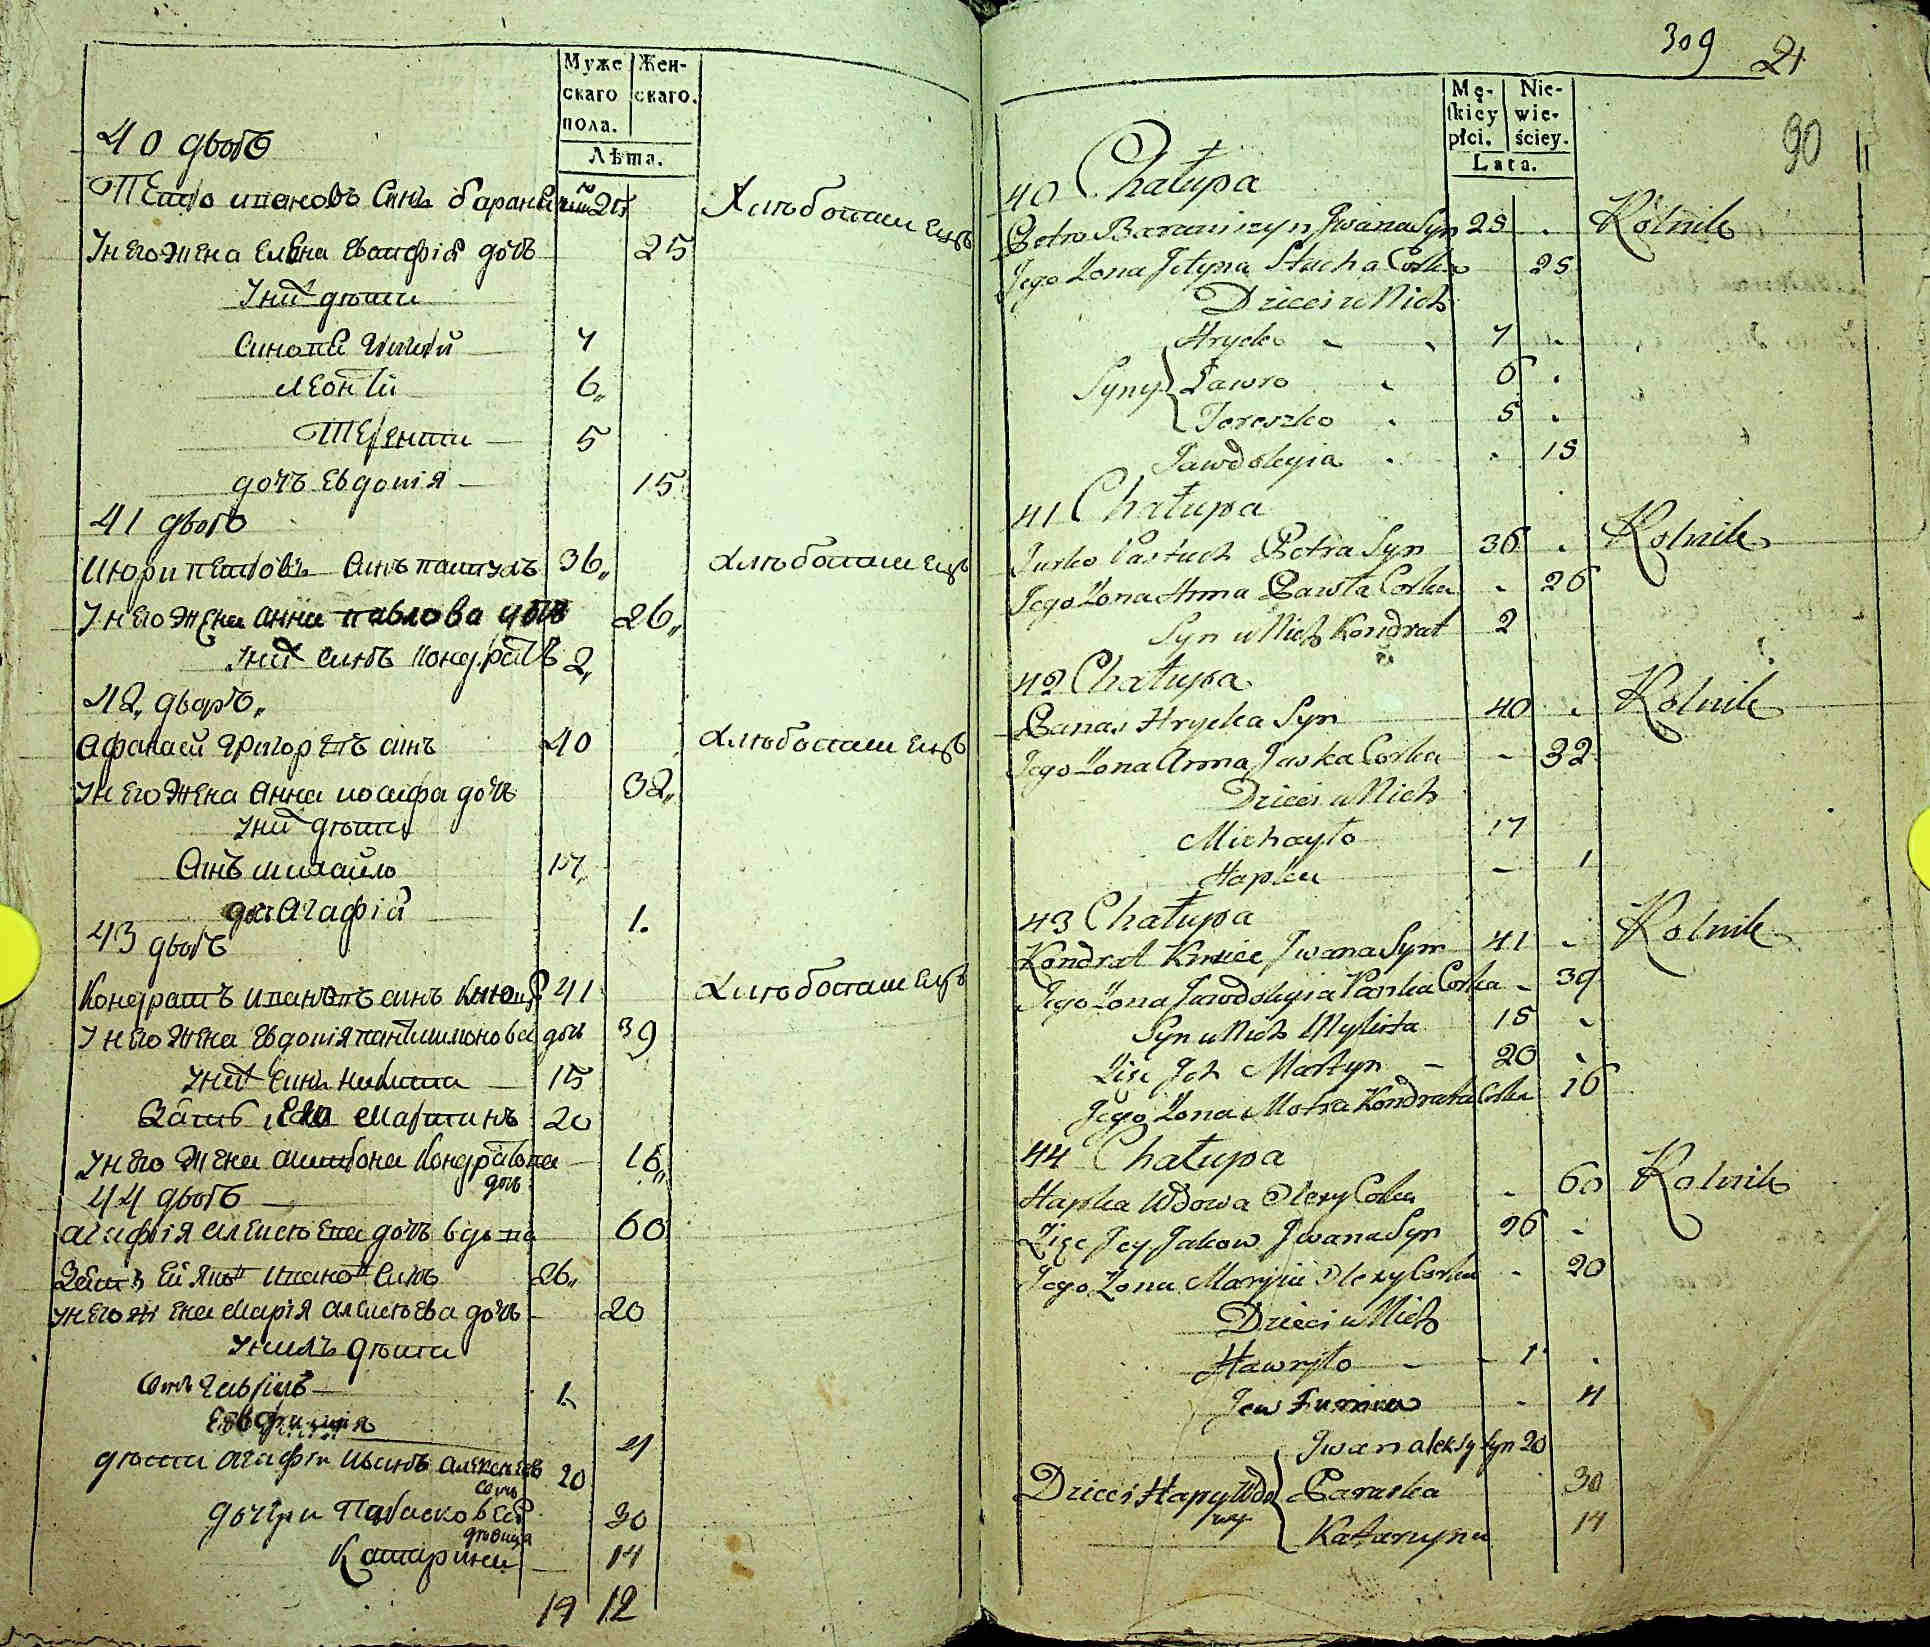 Муже
скаго
пола.
Жен-
скаго.
Лѣта.
40 дворъ
Петро ивановъ Синъ баранишинъ 25
Хлѣбопашецъ
У него жена Елена дочъ 25
У них дѣти
Синовя Григорий 7
Леонтий 6
Терентии 5
дочъ Евдокия 15
41 дворъ
Июри петровъ Синъ пастухъ 36
хлѣбопашецъ
У него жена анна павлова дочъ 26
У них синъ Кондратъ 2
42 дворъ
Афанасий Григоревъ синъ 40
хлѣбопашецъ
У него жена Анна иосифа дочъ 32
У них дѣти
Синъ михайло 17
дочъ Агафия 1.
43 дворъ
Кондратъ ивановъ синъ 41
хлѣбопашецъ
У него жена Евдокия пантилимонова дочъ 39
У них Синъ никита 15
Зятъ Его мартинъ 20
У него жена Кондратова дочъ 16
44 дворъ
агафия алексеева дочъ вдова 60
Зятъ Ей Яковъ иванов Синъ 26
У него жена мария алексеева дочъ 20
У нихъ дѣти
Синъ гаврилъ 1
Евфимия 4
дѣти агафии иванъ алексеевъ синъ 20
дочери Параскове девица 30
Катарина 14
19 12
309 21
90
Mę-
skiey
płci.
Nie-
wie-
ściey.
Lata.
40 Chałupa
Petro Baraniszyn Jwana Syn 25 Rolnik
Jego Zona Stacha Corka 25
Dzieci u Nich
Hrycko 7
Syny Ławro 6
Tereszko 5
Jawdokyia 15
41 Chałupa
Jurko Pastuch Petra Syn 36 Rolnik
Jego Zona Anna Pawła Corka 26
Syn u Nich Kondrat 2
42 Chałupa
Panas Hrycka Syn 40 Rolnik
Jego Zona Anna Jaska Corka 32
Dzieci u Nich
Michayło 17
Hapka 1
43 Chałupa
Kondrat Kmiec Jwana Syn 41 Rolnik
Jego Zona Jawdokyia Paska Corka 39
Syn u Nich Mykita 15
Zięc Ich Martyn 20
Jego Zona Motra Kondrata Corka 16
44 Chałupa
Hapka Wdowa Olexy Corka 60 Rolnik
Zięc Jey Jakow Jwana Syn 26
Jego Zona Maryia Olexy Corka 20
Dzieci u Nich
Hawryło 1
Jewfimia 4
Jwan aleksy syn 20
Dzieci Hapy Wdowy Paraska 30
Kataryna 14